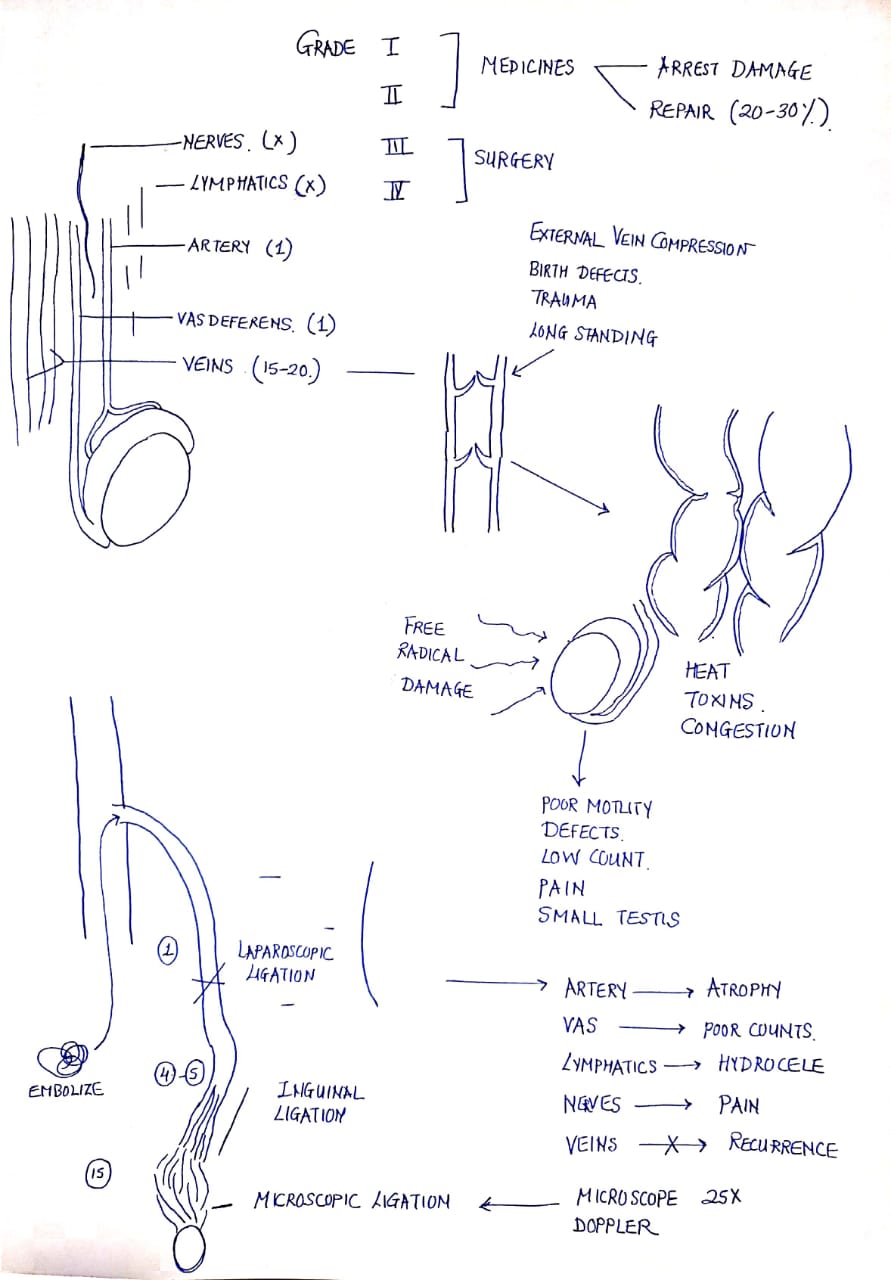 GRADE I
II
III
IV
MEDICINES
ARREST DAMAGE
REPAIR (20-30%).
SURGERY
NERVES. (X)
LYMPHATICS (X)
ARTERY (1)
VAS DEFERENS. (1)
VEINS (15-20.)
EXTERNAL VEIN COMPRESSION
BIRTH DEFECTS.
TRAUMA
LONG STANDING
FREE
RADICAL
DAMAGE
HEAT
TOXINS.
CONGESTION
POOR MOTLITY
DEFECTS.
LOW COUNT.
PAIN
SMALL TESTIS
1
LAPAROSCOPIC
LIGATION
EMBOLIZE
4-5
INGUINAL
LIGATION
15
MICROSCOPIC LIGATION
ARTERY → ATROPHY
VAS → POOR COUNTS.
LYMPHATICS → HYDROCELE
NERVES → PAIN
VEINS -X→ RECURRENCE
MICROSCOPE 25X
DOPPLER